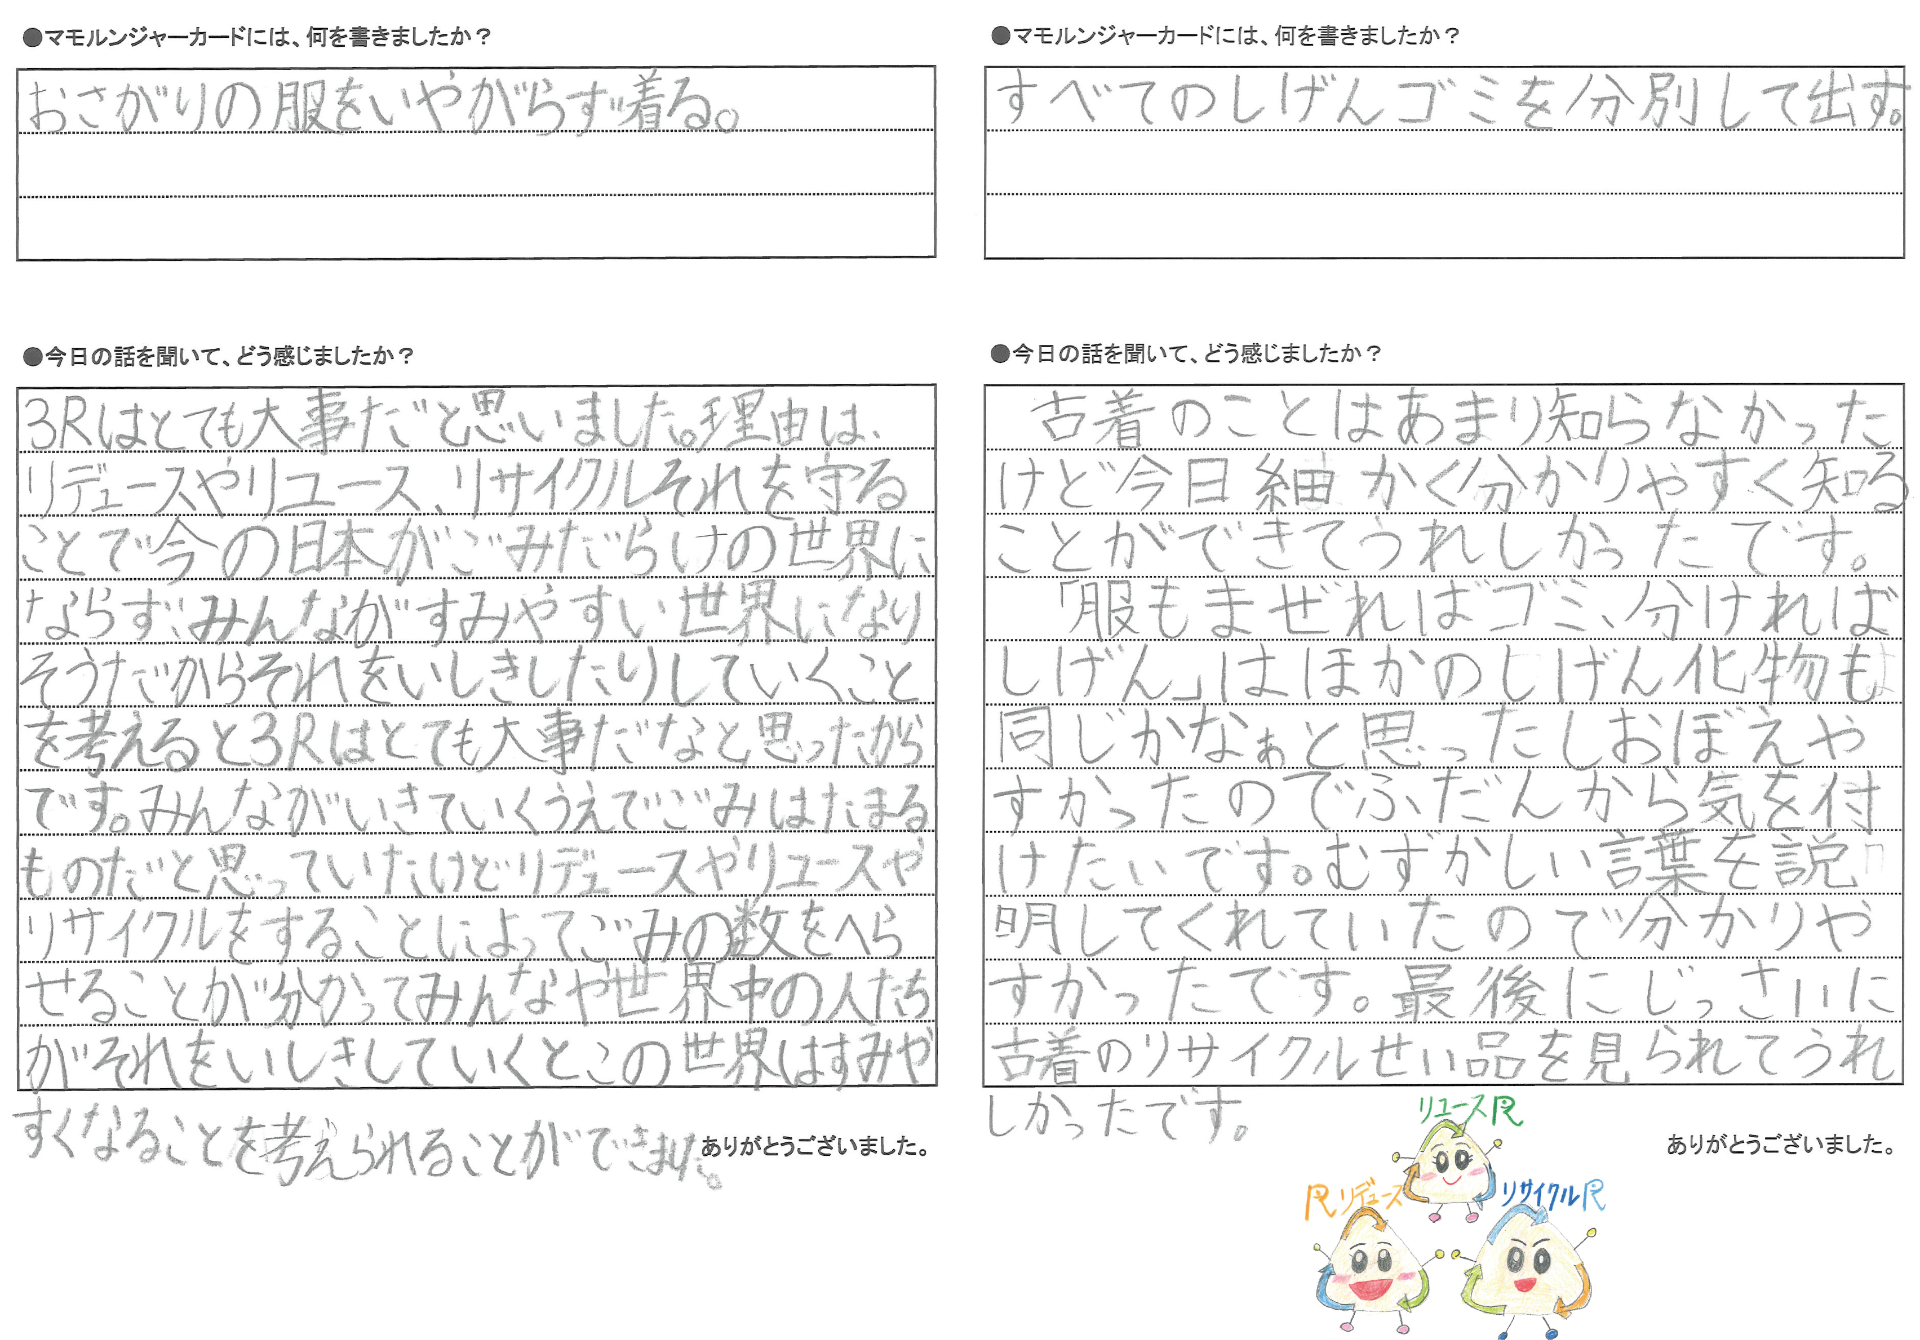 ●マモルンジャーカードには、何を書きましたか？
おさがりの服をいやがらず着る。
●今日の話を聞いて、どう感じましたか？
3Rはとても大事だと思いました。理由は、
リデュースやリユース、リサイクルそれを守る
ことで今の日本がごみだらけの世界に
ならず、みんながすみやすい世界になり
そうだからそれをいしきしたりしていくこと
を考えると3Rはとても大事だなと思ったから
です。みんながいきていくうえでごみはたまる
ものだと思っていたけどリデュースやリユースや
リサイクルをすることによってごみの数をへら
せることが分かってみんなや世界中の人たち
がそれをいしきしていくとこの世界はすみや
すくなることを考えられることができました。
ありがとうございました。
●マモルンジャーカードには、何を書きましたか？
すべてのしげんゴミを分別して出す。
●今日の話を聞いて、どう感じましたか？
古着のことはあまり知らなかった
けど今日細かく分かりやすく知る
ことができてうれしかったです。
「服もまぜればゴミ、分ければ
しげん」はほかのしげん化物も
同じかなぁと思ったしおぼえや
すかったのでふだんから気を付
けたいです。むずかしい言葉を説
明してくれていたので分かりや
すかったです。最後にじっさいに
古着のリサイクルせい品を見られてうれ
しかったです。
ありがとうございました。
リユースR
Rリデュース
リサイクルR